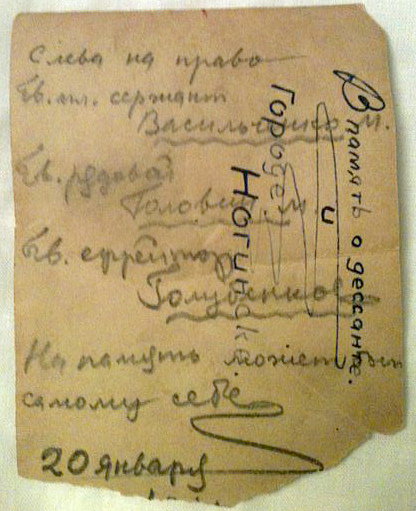 Слева на право
Гв. мл. сержант
Васильченко М.
Гв. рядовой
Головин М.
Гв. ефрейтор
Голубенков
На память может
самому себе
20 января
В память о десанте.
и
Городе
Ногинск.